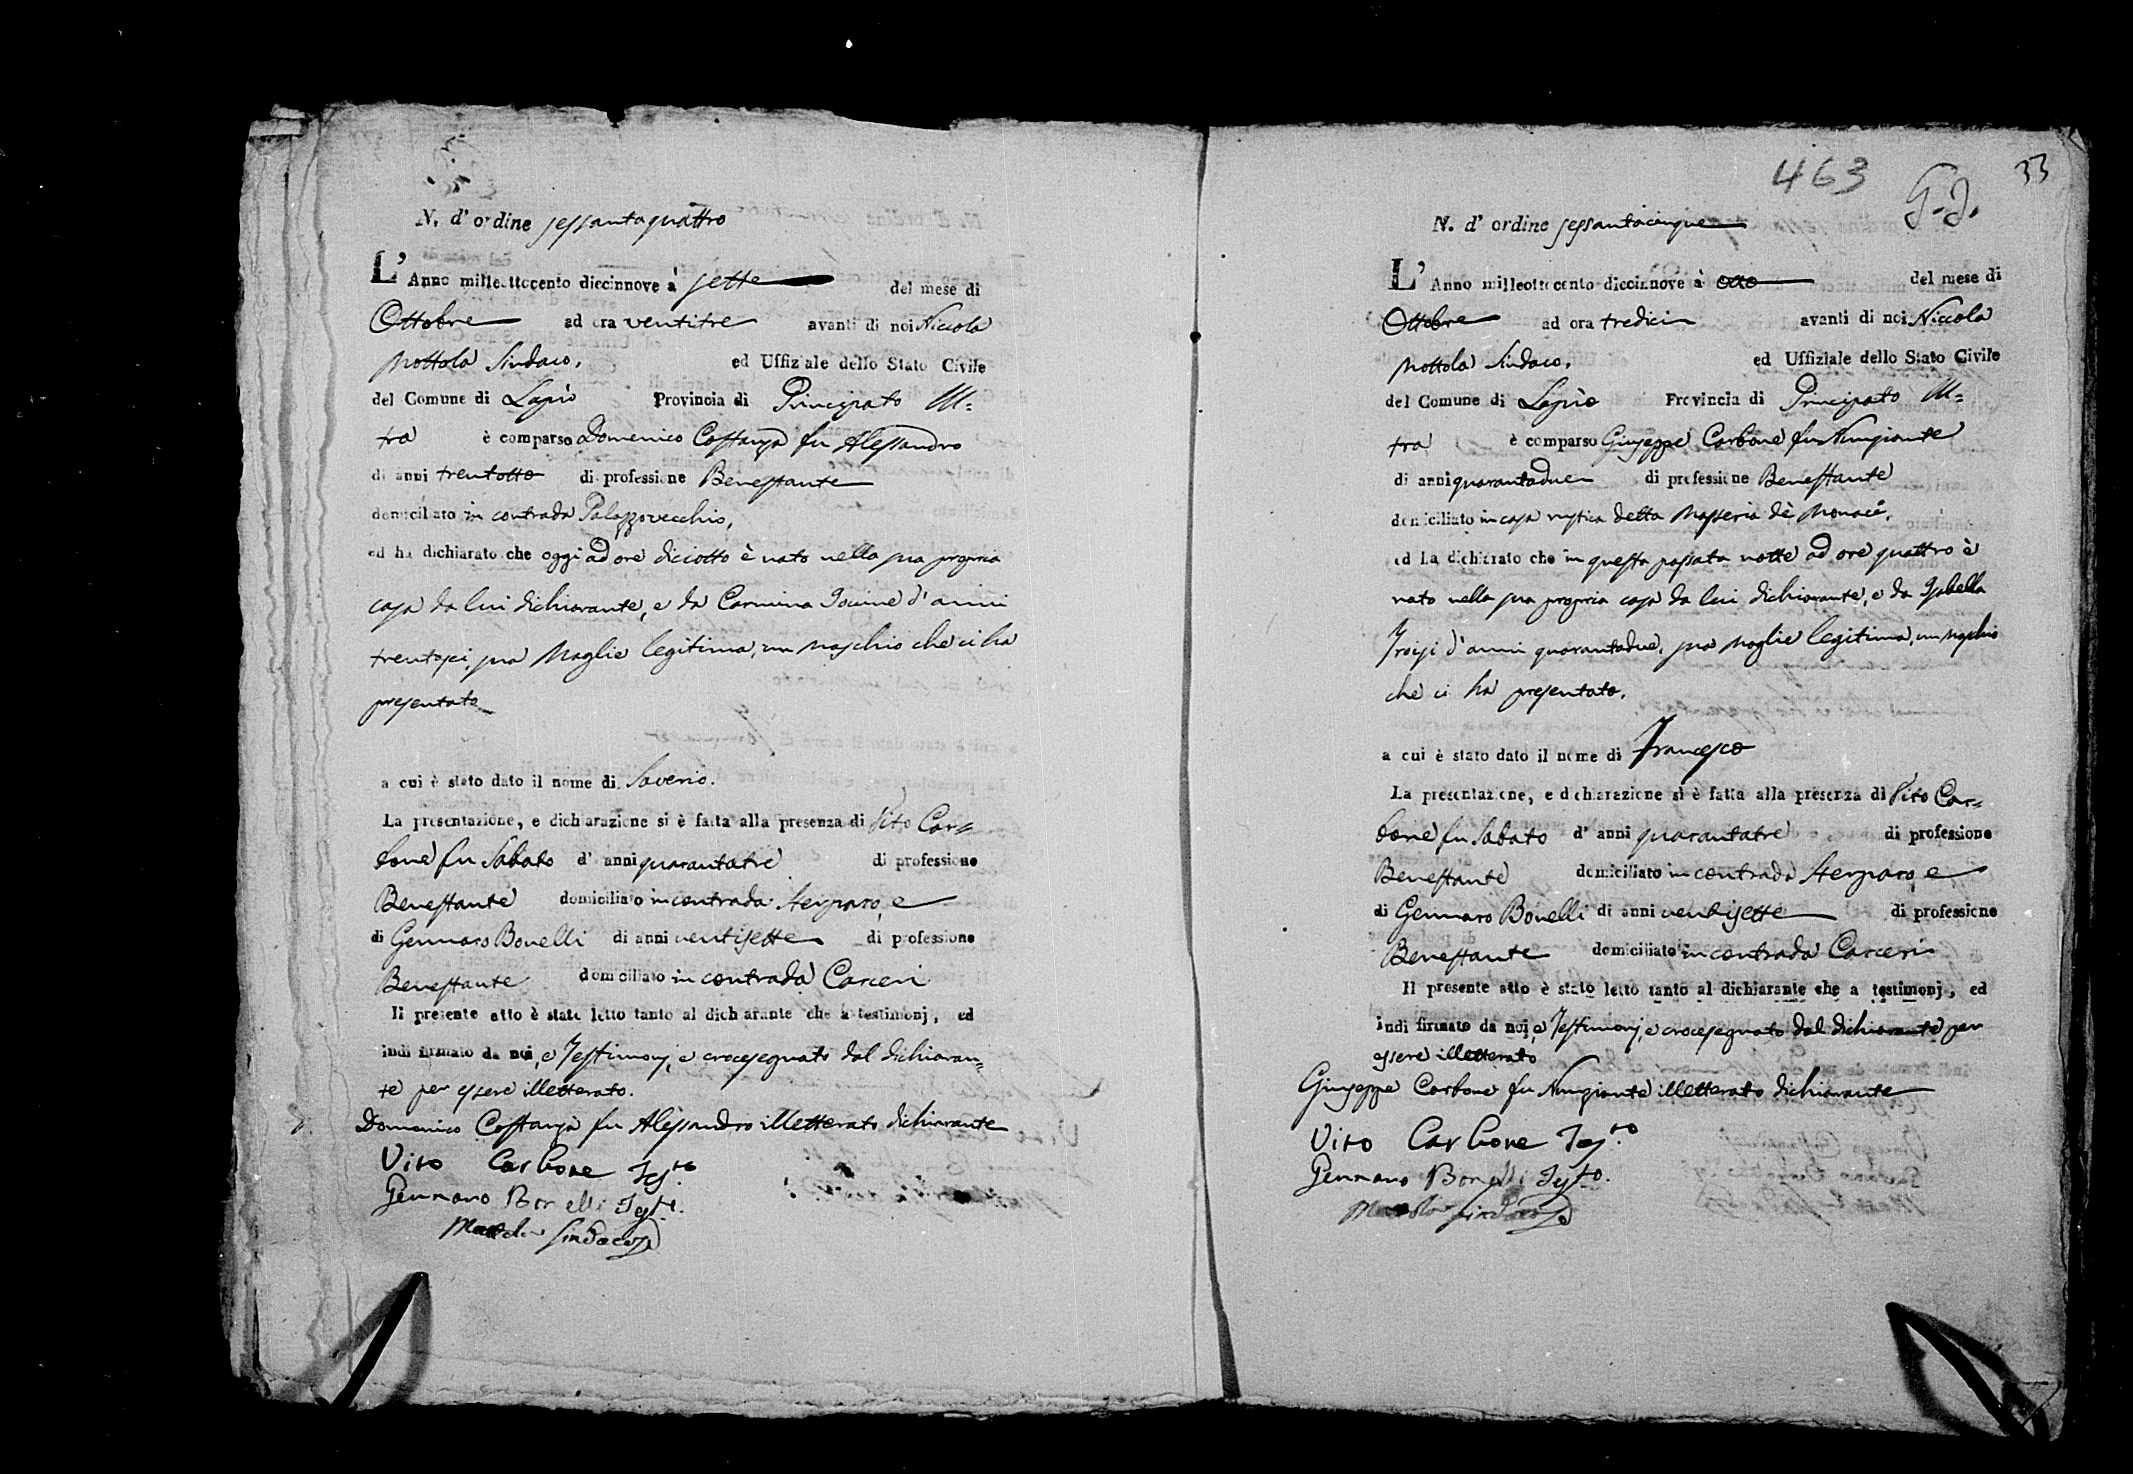 N. d' ordine sessantaquattro
L' Anno milleottocento diecinnove à sette del mese di
Ottobre ad ora ventitre avanti di noi Niccola
Mottola Sindaco, ed Uffiziale dello Stato Civile
del Comune di Lapio Provincia di Principato Ul=
tra è comparso Domenico Costanza fu Alessandro
di anni trentotto di professione Benestante
domiciliato in contrada Palazzovecchio,
ed ha dichiarato che oggi ad ore diciotto è nato nella sua propria
casa da lui dichiarante, e da Carmina d' anni
trentasei sua Moglie legitima, un maschio che ci ha
presentato
a cui è stato dato il nome di Saverio.
La presentazione, e dichiarazione si è fatta alla presenza di Vito Car=
bone fu Sabato d' anni quarantatre di professione
Benestante domiciliato in contrada Sterparo, e
di Gennaro Bonelli di anni ventisette di professione
Benestante domiciliato in contrada Carceri
Il presente atto è stato letto tanto al dichiarante che a testimonj, ed
indi firmato da noi, e Testimonj, e crocesegnato dal dichiaran=
te per essere illetterato.
Domenico Costanza fu Alessandro illetterato dichiarante
Vito Carbone Testo
Gennaro Bonelli Testo.
Mottola Sindaco
463 G.J. 33
N. d' ordine sessantacinque
L' Anno milleottocento diecinnove à otto del mese di
Ottobre ad ora tredici avanti di noi Niccola
Mottola Sindaco, ed Uffiziale dello Stato Civile
del Comune di Lapio Provincia di Principato Ul=
tra è comparso Giuseppe Carbone fu Nunziante
di anni quarantadue di professione Benestante
domiciliato in casa rustica detta Masseria dè Monaci,
ed ha dichiarato che in questa passata notte ad ore quattro è
nato nella sua propria casa da lui dichiarante, e da Isabella
Troisi d' anni quarantadue, sua moglie legitima, un maschio
che ci ha presentato,
a cui è stato dato il nome di Francesco
La presentazione, e dichiarazione si è fatta alla presenza di Vito Car=
bone fu Sabato d' anni quarantatre di professione
Benestante domiciliato in contrada Sterparo, e
di Gennaro Bonelli di anni ventisette di professione
Benestante domiciliato in contrada Carceri
Il presente atto è stato letto tanto al dichiarante che a testimonj, ed
indi firmato da noi, e Testimonj, e crocesegnato dal dichiarante per
essere illetterato
Giuseppe Carbone fu Nunziante illetterato dichiarante
Vito Carbone Testo
Gennaro Bonelli Testo.
Mottola Sindaco